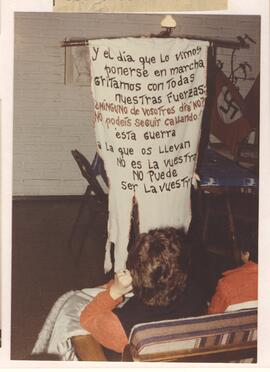 y el día que lo vimos
ponerse en marcha
gritamos con todas
nuestras fuerzas:
¿NINGUNO de VOSOTROS dirá NO?
¡No podeis seguir callando!
esta guerra
a la que os llevan
No es la vuestra
NO PUEde
ser la vuestra